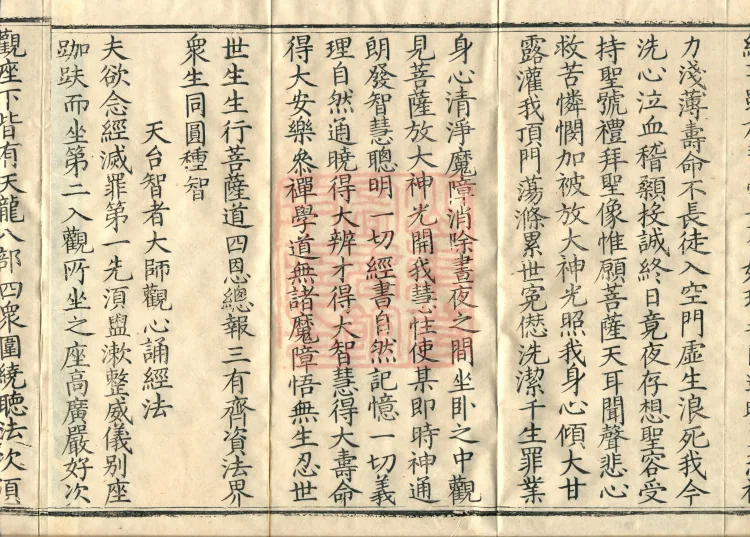 力淺薄壽命不長徒入空門虛生浪死我今
洗心泣血稽顙投誠終日竟夜存想聖容受
持聖號禮拜聖像惟願菩薩天耳聞聲悲心
救苦憐憫加被放大神光照我身心傾大甘
露灌我頂門蕩滌累世寃愆洗潔千生罪業
身心清淨魔障消除晝夜之間坐卧之中觀
見菩薩放大神光開我慧性使某即時神通
朗發智慧聰明一切經書自然記憶一切義
理自然通曉得大辨才得大智慧得大壽命
得大安樂叅禪學道無諸魔障悟無生忍世
世生生行菩薩道四恩總報三有齊資法界
衆生同圓種智
天台智者大師觀心誦經法
夫欲念經滅罪第一先須盥漱整威儀别座
跏趺而坐第二入觀所坐之座高廣嚴好次
觀座下皆有天龍八部四衆圍繞聽法次須